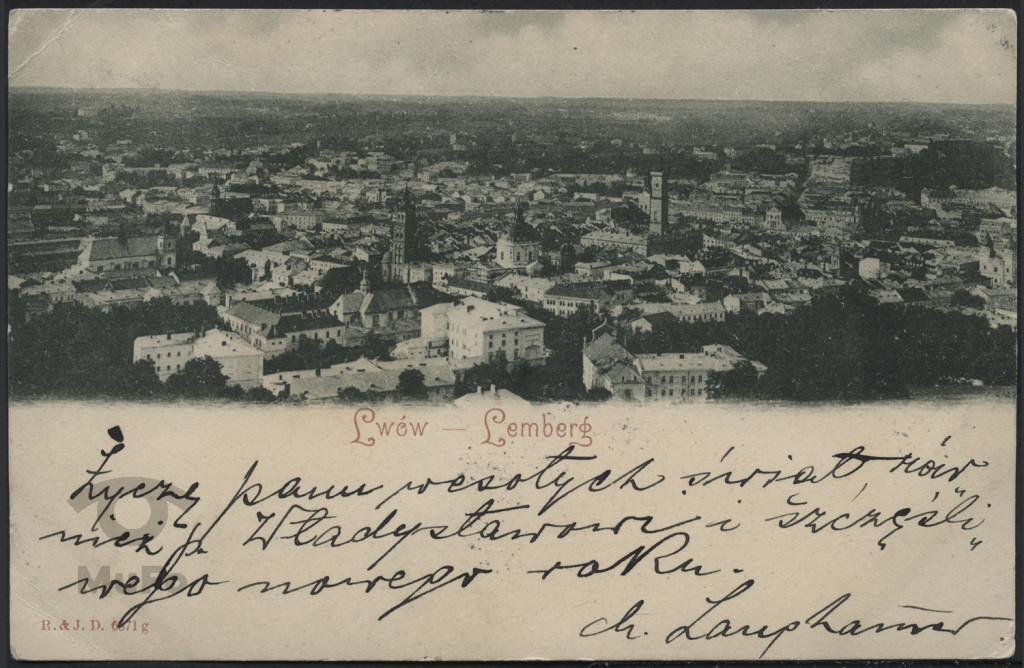 Lwów — Lemberg
Życzę panu wesołych świat, rów
nież p. Władysławowi i szczęśli
wego nowego roku.
ch. Langhammer
R. & J. D. 6871g